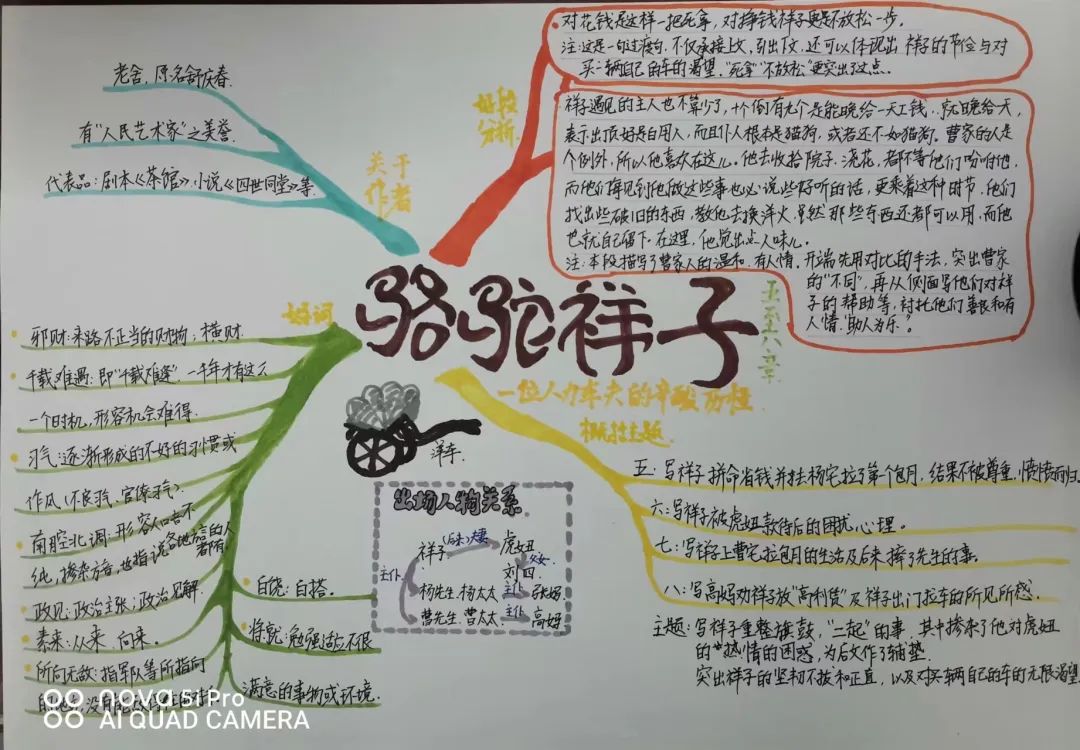 骆驼祥子
五至八章
一位人力车夫的辛酸历程
关于
作者
老舍，原名舒庆春
有“人民艺术家”之美誉
代表品：剧本《茶馆》，小说《四世同堂》等
好段
分析
对花钱是这样一把死拿，对挣钱祥子更是不放松一步。
注：这是一句过渡句，不仅承接上文，引出下文，还可以体现出祥子的节俭与对
买一辆自己的车的渴望，“死拿”“不放松”更突出了这点。
祥子遇见的主人也不算少了，十个倒有九个是能晚给一天工钱，就晚给一天
表示出顶好是白用人，而且仆人根本是猫狗，或者还不如猫狗。曹家的人是
个例外，所以他喜欢在这儿。他去收拾院子，浇花，都不等他们吩咐他，
而他们每见到他做这些事也必说些好听的话，更乘着这种时节，他们
找出些破旧的东西，教他去换洋火，虽然那些东西还都可以用，而他
也就自己留下。在这里，他觉出点人味儿。
注：本段描写了曹家人的温和，有人情。开端先用对比的手法，突出曹家
的“不同”，再从侧面写他们对祥
子的帮助等，衬托他们善良和有
人情，助人为乐。
好词
邪财：来路不正当的财物；横财
千载难遇：即“千载难逢”，一千年才有这么
一个时机，形容机会难得。
习气：逐渐形成的不好的习惯或
作风（不良习气、官僚习气）
南腔北调：形容人口音不
纯，掺杂方音，也指说各地方言的人
都有
政见：政治主张；政治见解
素来：从来，向来。
所向无敌：指军队等所指向
白饶：白搭。
将就：勉强适应不很
满意的事物或环境
洋车
出场人物关系
祥子
(后来)夫妻
虎妞
父女
刘四
主仆
杨先生，杨太太
主仆
张妈
曹先生，曹太太
主仆
高妈
概括主题
五：写祥子拼命省钱并挂杨宅拉了第一个包月，结果不被尊重，愤愤而归。
六：写祥子被虎妞款待后的困扰心理。
七：写祥子上曹宅拉包月的生活及后来摔了先生的事。
八：写高妈劝祥子放“高利贷”及祥子出门拉车的所见所感。
主题：写祥子重整旗鼓，“二起”的事，其中掺杂了他对虎妞
的热情的困惑，为后文作了铺垫。
突出祥子的坚韧不拔和正直，以及对买一辆自己的车的无限渴望
nova 5i Pro
AI QUAD CAMERA